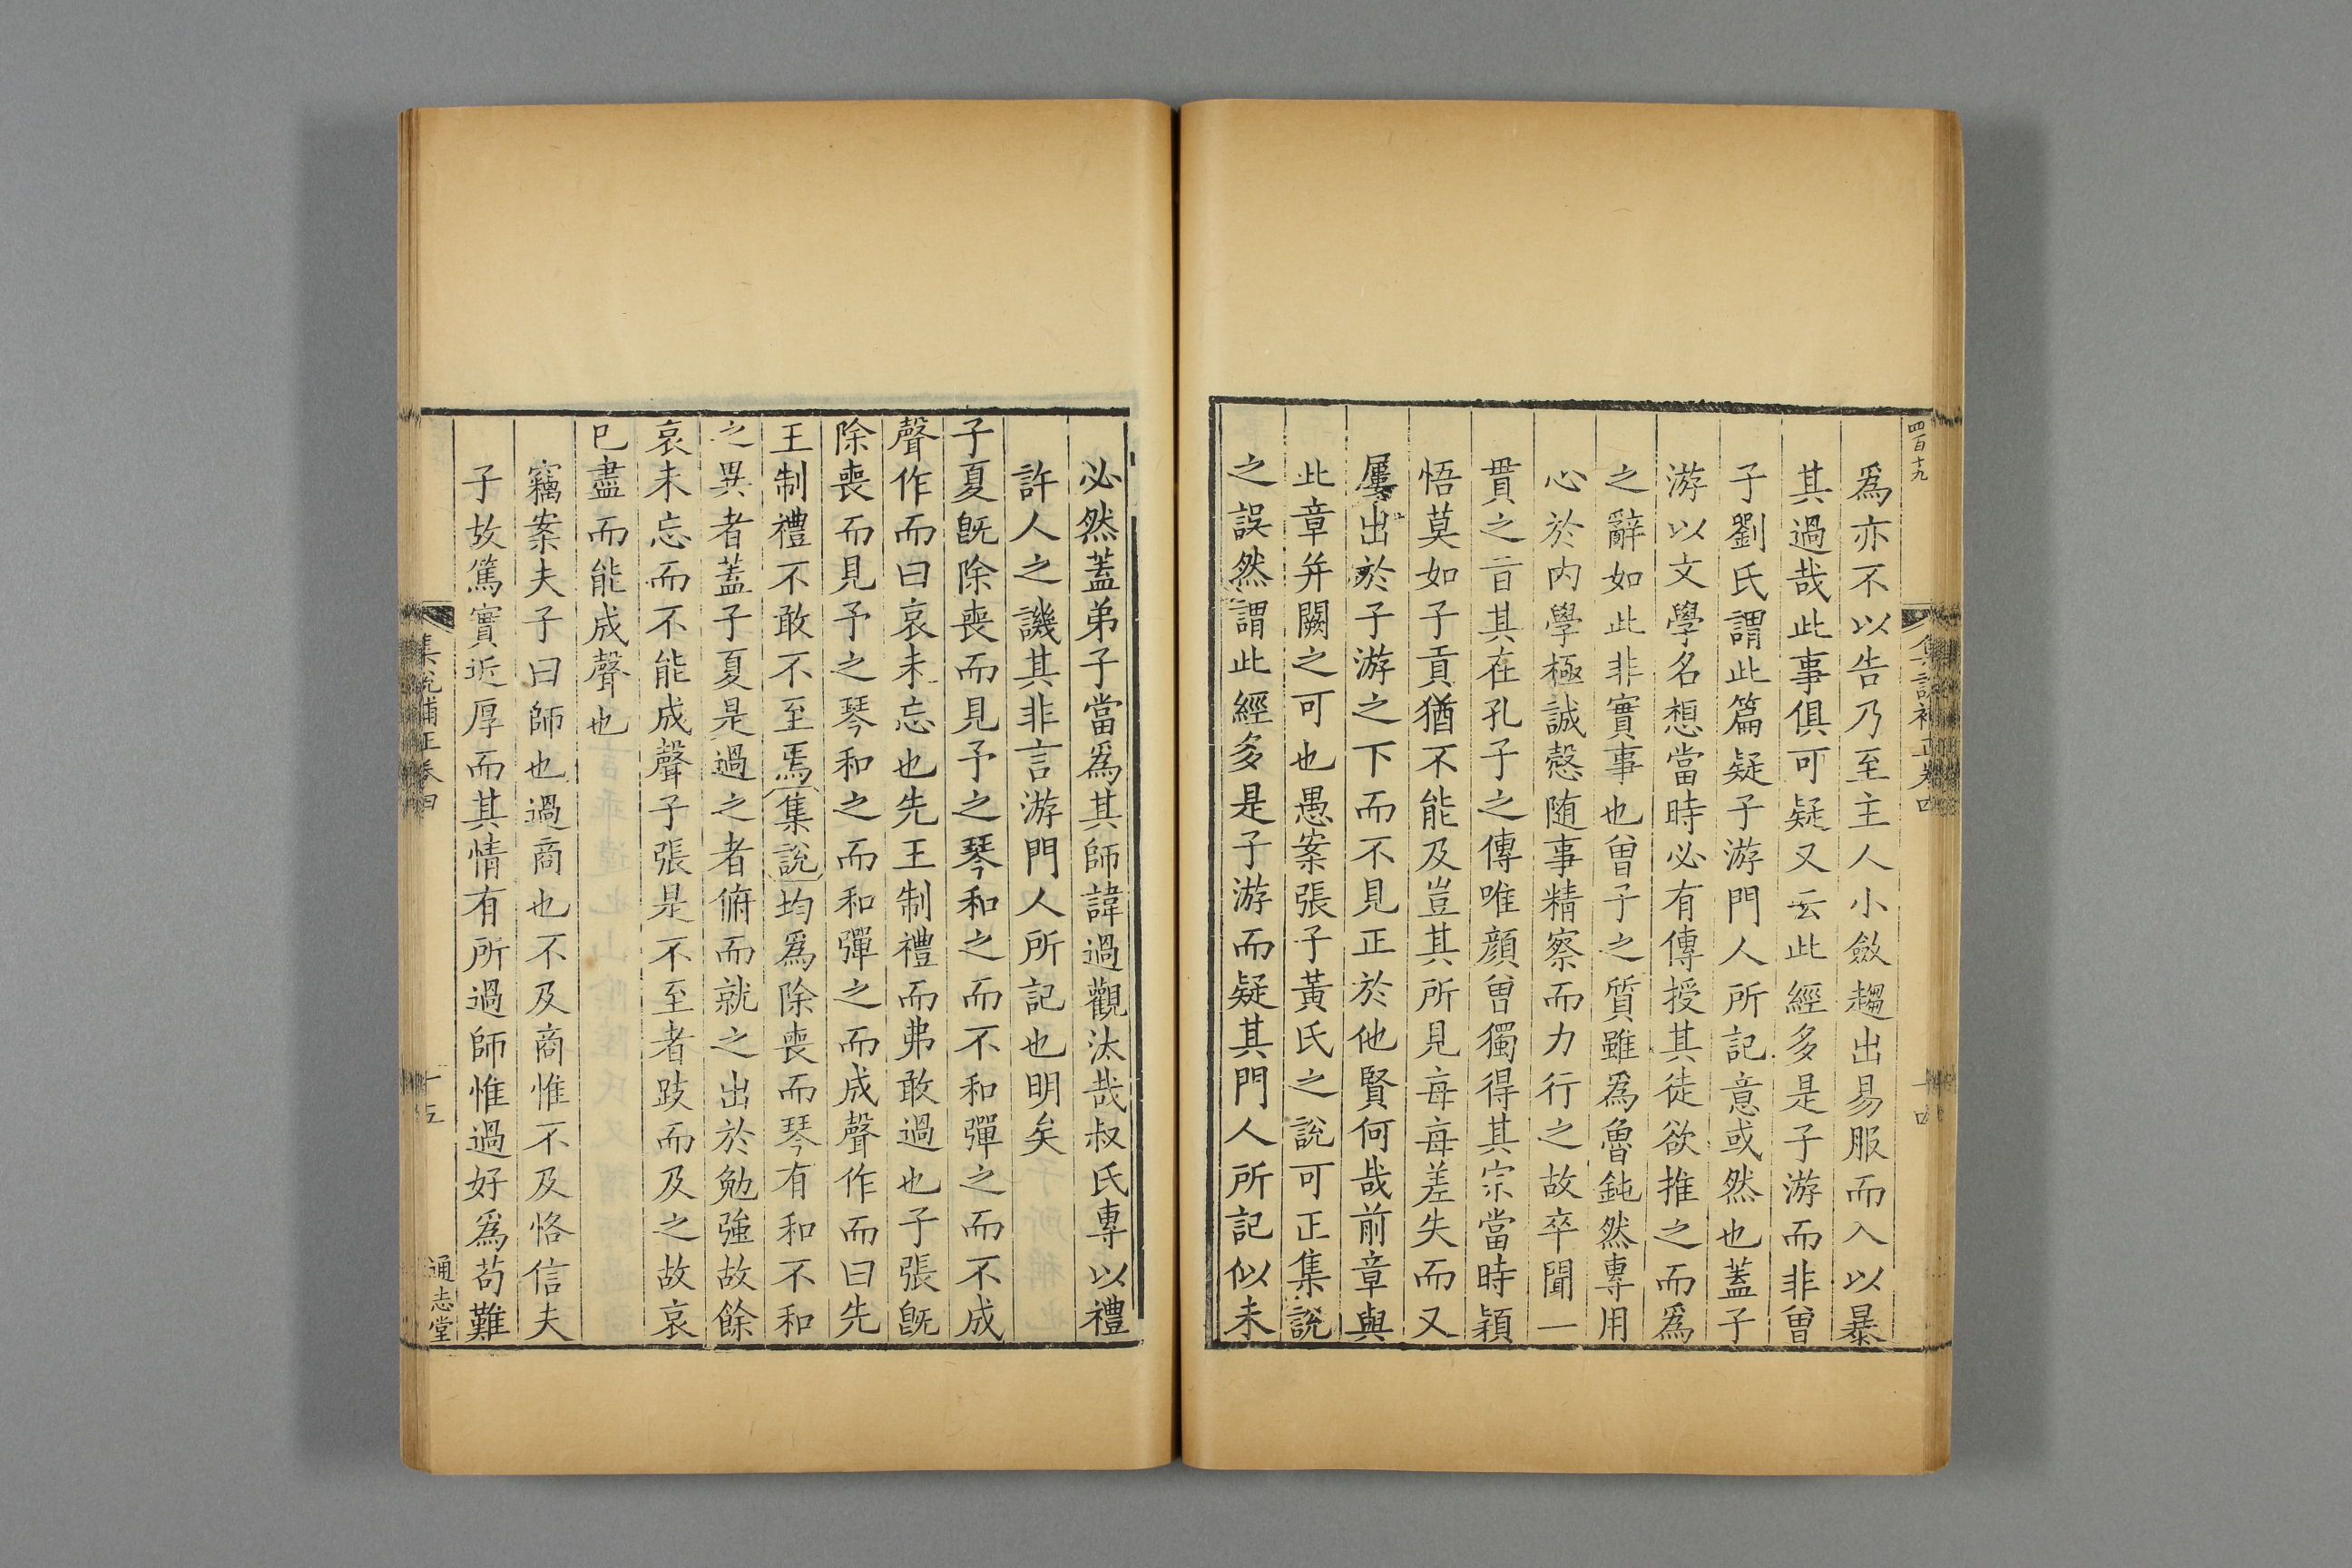 四百十九
爲亦不以告乃至主人小斂趨出易服而入以暴
其過哉此事俱可疑又云此經多是子游而非曾
子劉氏謂此篇疑子游門人所記意或然也蓋子
游以文學名想當時必有傳授其徒欲推之而爲
之辭如此非實事也曾子之質雖爲魯鈍然專用
心於内學極誠慤随事精察而力行之故卒聞一
貫之旨其在孔子之傳唯顔曾獨得其宗當時穎
悟莫如子貢猶不能及豈其所見每每差失而又
屢出於子游之下而不見正於他賢何哉前章與
此章并闕之可也愚案張子黃氏之說可正集說
之誤然謂此經多是子游而疑其門人所記似未
必然蓋弟子當爲其師諱過觀汰哉叔氏專以禮
許人之譏其非言游門人所記也明矣
子夏旣除喪而見予之琴和之而不和彈之而不成
聲作而曰哀未忘也先王制禮而弗敢過也子張旣
除喪而見予之琴和之而和彈之而成聲作而曰先
王制禮不敢不至焉集說均爲除喪而琴有和不和
之異者蓋子夏是過之者俯而就之出於勉強故餘
哀未忘而不能成聲子張是不至者跂而及之故哀
已盡而能成聲也
竊案夫子曰師也過商也不及商惟不及恪信夫
子故篤實近厚而其情有所過師惟過好爲苟難
集說補正卷四
十五
通志堂